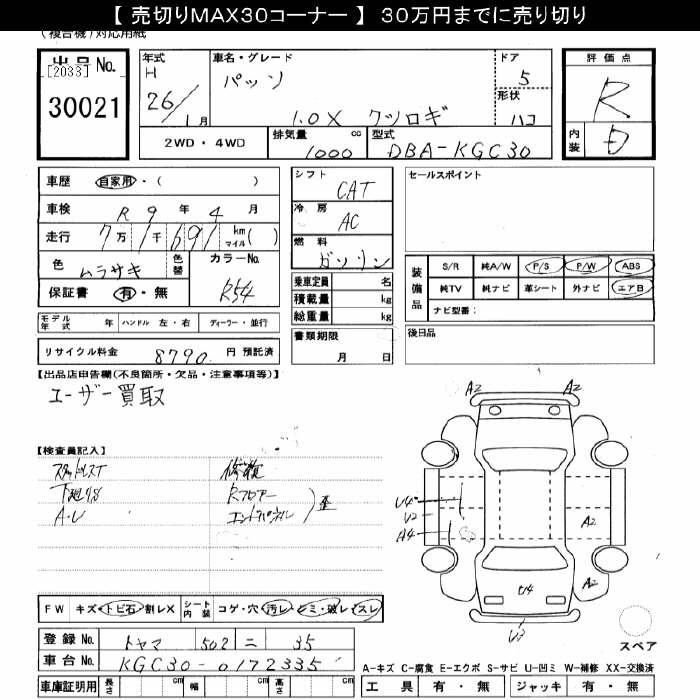 【 売切りMAX30コーナー 】 30万円までに売り切り
(複合機)対応用紙
出品No.
[2033]
30021
年式 H 26/1月
車名・グレード
パッソ
1.0X クツロギ
ドア 5
形状 ハコ
2WD・4WD
排気量 1000 cc
型式 DBA-KGC30
評価点
R
内装 D
車歴 自家用・( )
車検 R 9年 4月
走行 7万1千691 km マイル( )
色 ムラサキ 色替
カラーNo. R54
保証書 有・無
モデル年式 年 ハンドル 左・右 ディーラー・並行
リサイクル料金 8790 円 預託済
シフト CAT
冷房 AC
燃料 ガソリン
乗車定員 名
積載量 kg
総重量 kg
書類期限
月 日
セールスポイント
装備品
S/R 純A/W P/S P/W ABS
純TV 純ナビ 革シート 外ナビ エアB
ナビ型番:
後日品
【出品店申告欄(不良箇所・欠品・注意事項等)】
ユーザー買取
【検査員記入】
下廻りS
A・U
修復
Rフロアー
エンドパネル
歪
A2
A2
U4
U2
A4
A2
A2
U4
U3
スペア
FW キズ・トビ石・割レX
シート内装 コゲ・穴・汚レ・シミ・破レ・スレ
登録No. トヤマ 502 ニ 35
車台No. KGC30-0172335
車庫証明用 長さ cm 幅 cm 高さ cm
A-キズ C-腐食 E-エクボ S-サビ U-凹ミ W-補修 XX-交換済
工具 有・無 ジャッキ 有・無